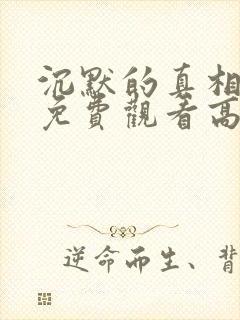 沉默的真相
免費觀看高
逆命而生、背